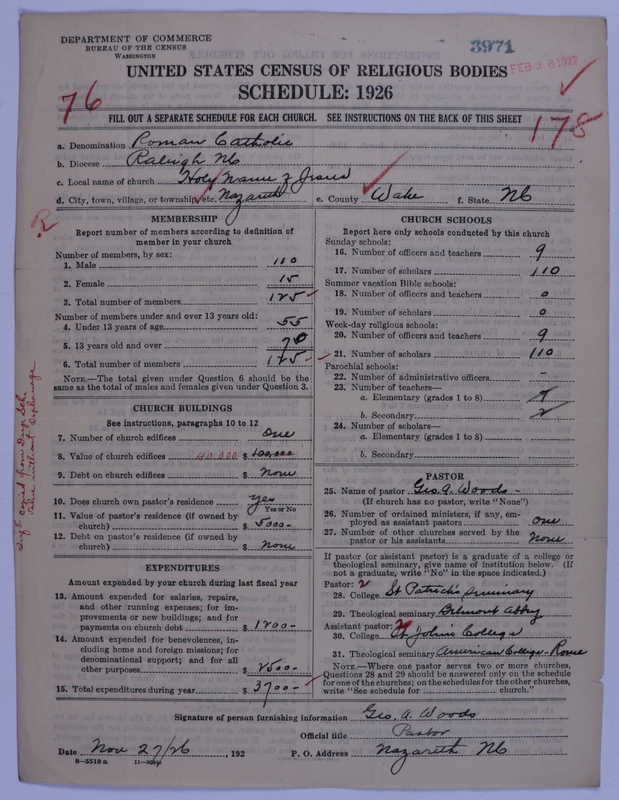 DEPARTMENT OF COMMERCE
BUREAU OF THE CENSUS
WASHINGTON
3971
FEB 28 1927
UNITED STATES CENSUS OF RELIGIOUS BODIES
SCHEDULE: 1926
76
178
FILL OUT A SEPARATE SCHEDULE FOR EACH CHURCH. SEE INSTRUCTIONS ON THE BACK OF THIS SHEET
a. Denomination Roman Catholic
b. Diocese Raleigh NC
c. Local name of church Holy Name of Jesus
d. City, town, village, or township, etc. Nazareth e. County Wake f. State NC
MEMBERSHIP
Report number of members according to definition of
member in your church
Number of members, by sex:
1. Male 110
2. Female 15
3. Total number of members 125
Number of members under and over 13 years old:
4. Under 13 years of age 55
5. 13 years old and over 70
6. Total number of members 125
NOTE.—The total given under Question 6 should be the
same as the total of males and females given under Question 3.
CHURCH BUILDINGS
See instructions, paragraphs 10 to 12
7. Number of church edifices one
8. Value of church edifices 40.000 $ 100,000
9. Debt on church edifices $ None
10. Does church own pastor's residence yes
Yes or No
11. Value of pastor's residence (if owned by
church) $ 5000-
12. Debt on pastor's residence (if owned by
church) $ None
EXPENDITURES
Amount expended by your church during last fiscal year
13. Amount expended for salaries, repairs,
and other running expenses; for im-
provements or new buildings; and for
payments on church debt $ 1200-
14. Amount expended for benevolences, in-
cluding home and foreign missions; for
denominational support; and for all
other purposes $ 2500-
15. Total expenditures during year $ 3700-
CHURCH SCHOOLS
Report here only schools conducted by this church
Sunday schools:
16. Number of officers and teachers 9
17. Number of scholars 110
Summer vacation Bible schools:
18. Number of officers and teachers 0
19. Number of scholars 0
Week-day religious schools:
20. Number of officers and teachers 9
21. Number of scholars 110
Parochial schools:
22. Number of administrative officers -
23. Number of teachers—
a. Elementary (grades 1 to 8)
b. Secondary 2
24. Number of scholars—
a. Elementary (grades 1 to 8)
b. Secondary
PASTOR
25. Name of pastor Geo. A. Woods -
(If church has no pastor, write "None")
26. Number of ordained ministers, if any, em-
ployed as assistant pastors one
27. Number of other churches served by the
pastor or his assistants None
If pastor (or assistant pastor) is a graduate of a college or
theological seminary, give name of institution below. (If
not a graduate, write "No" in the space indicated.)
Pastor: 2
28. College St Patricks Seminary
29. Theological seminary Belmont Abbey
Assistant pastor: 2
30. College St Johns College
31. Theological seminary American College - Rome
NOTE.—Where one pastor serves two or more churches,
Questions 28 and 29 should be answered only on the schedule
for one of the churches; on the schedules for the other churches,
write "See schedule for church."
Signature of person furnishing information Geo. A. Woods
Official title Pastor
Date Nov 27/26, 192 P. O. Address Nazareth NC
8-5519 a